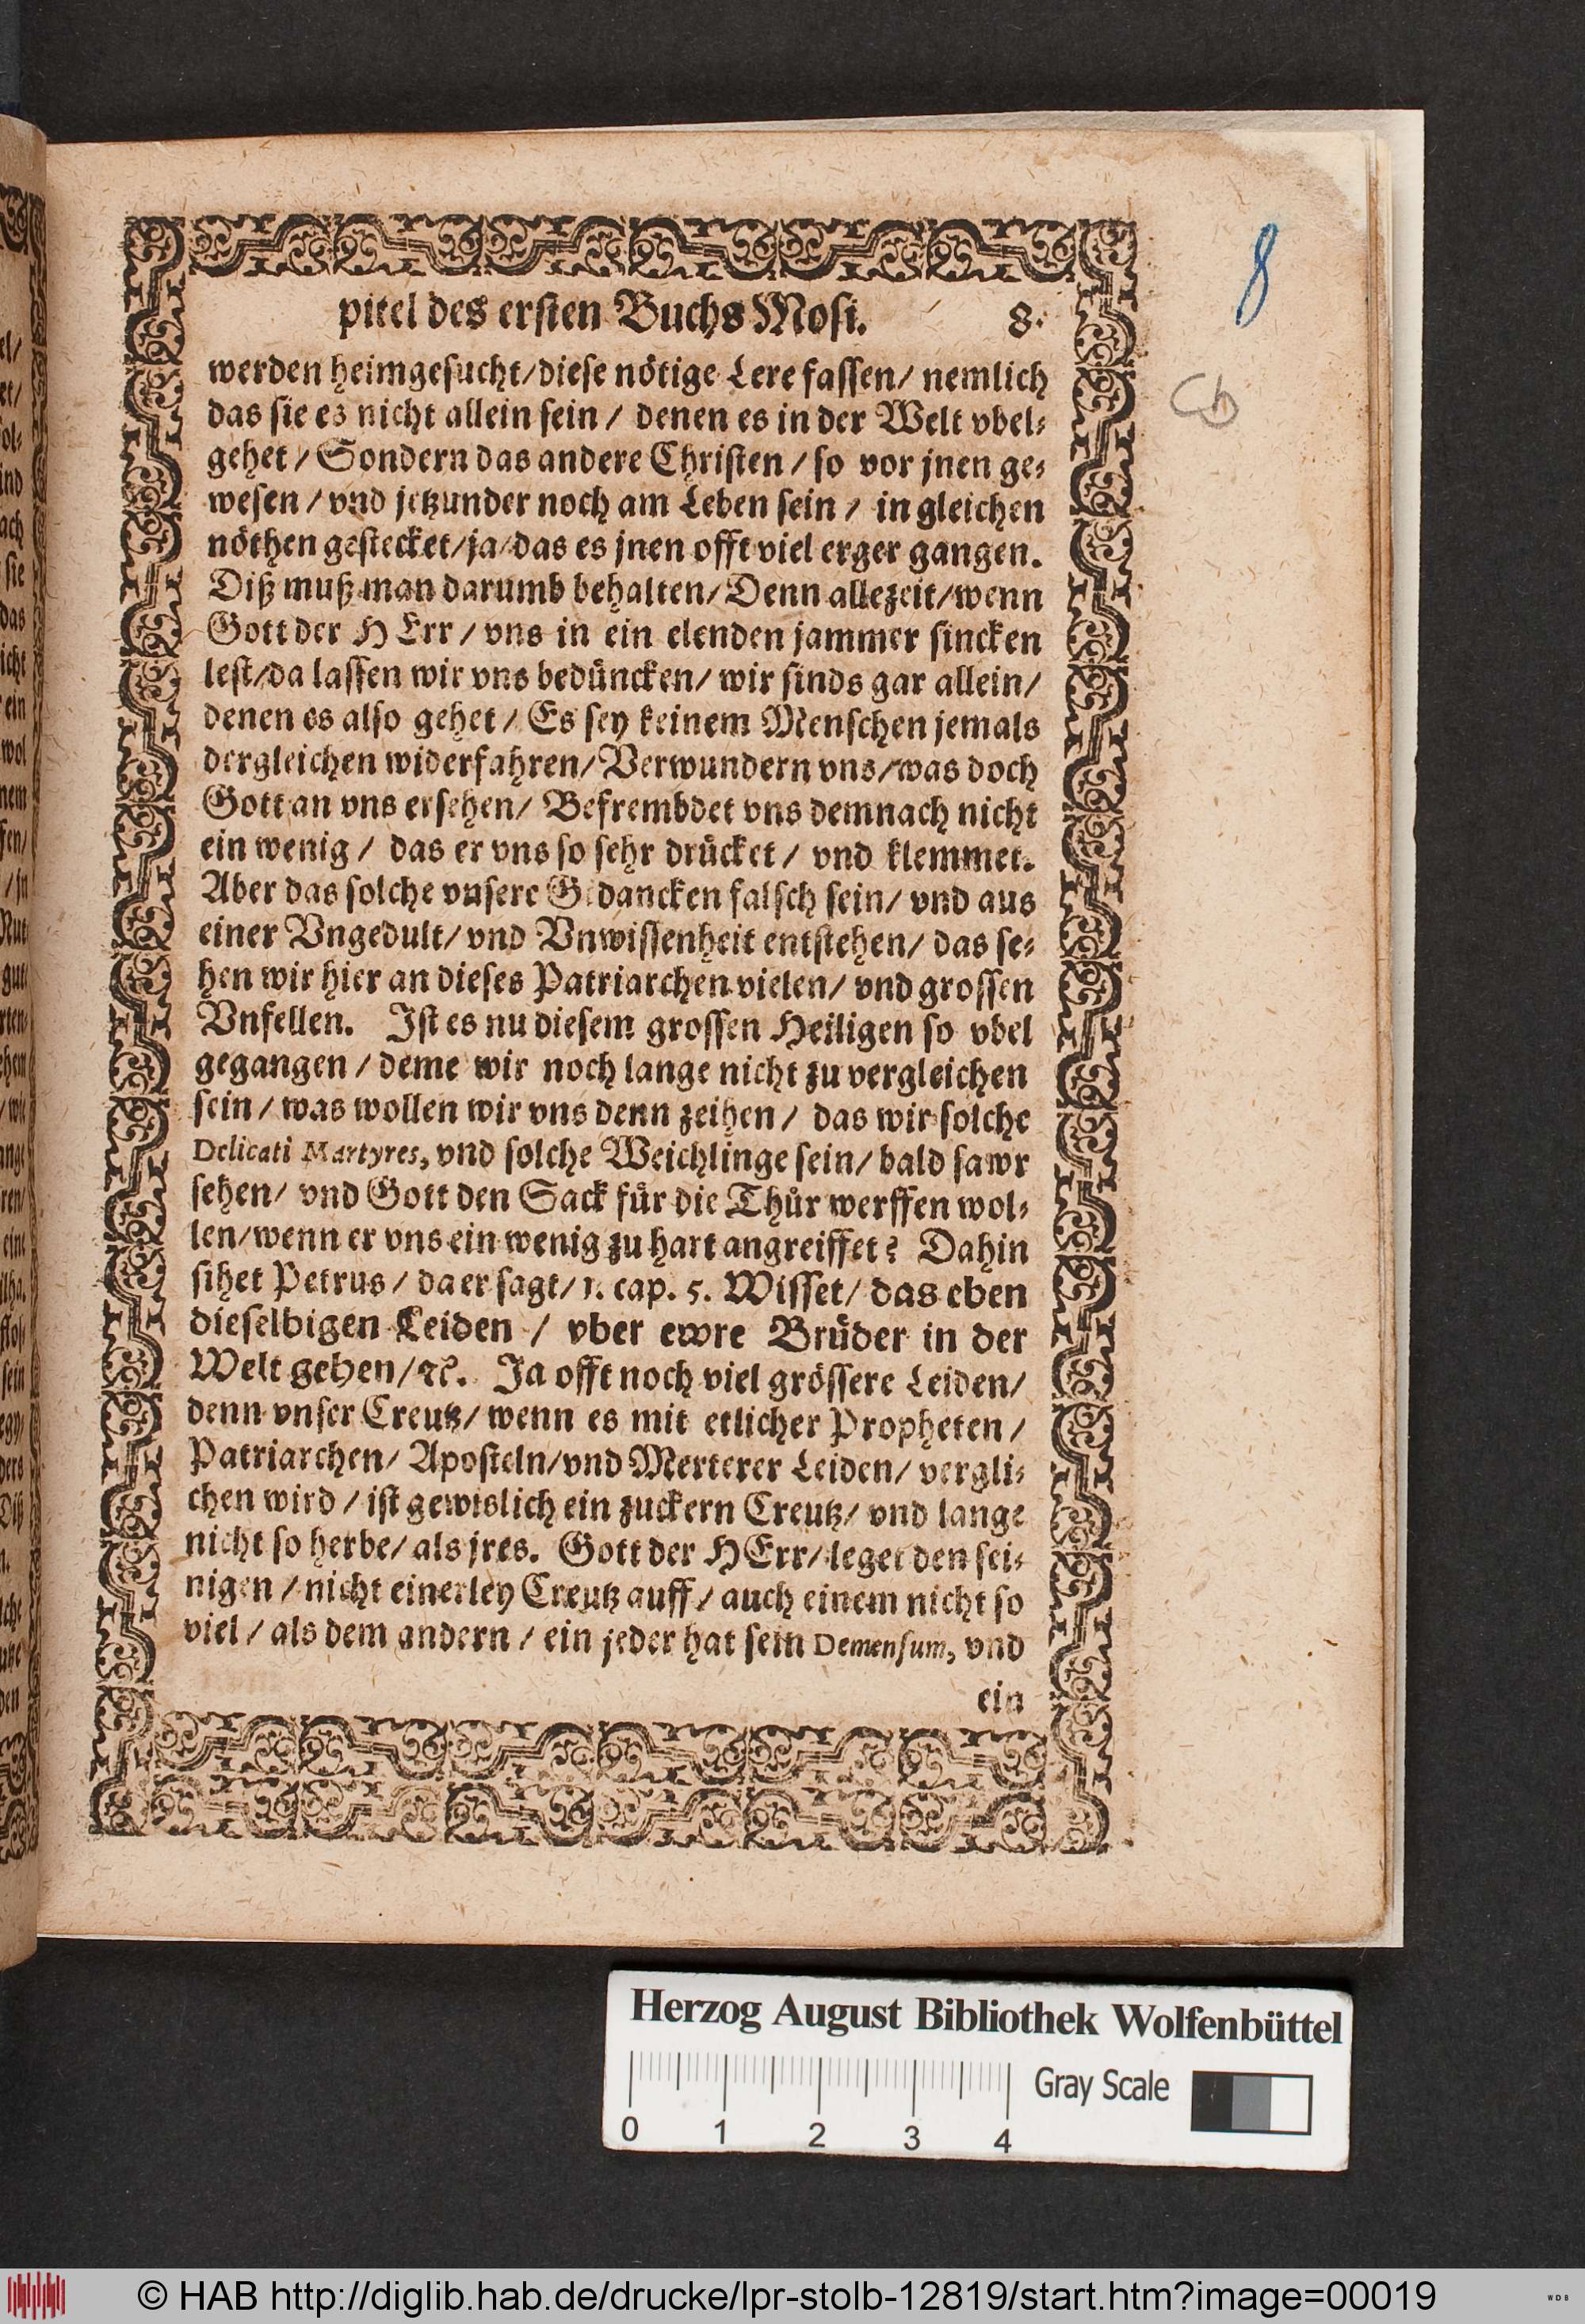 pitel des ersten Buchs Mosi. 8.
werden heimgesucht/diese nötige Lere fassen/ nemlich
das sie es nicht allein sein / denen es in der Welt vbel⸗
gehet / Sondern das andere Christen / so vor jnen ge⸗
wesen / vnd jetzunder noch am Leben sein / in gleichen
nöthen gestecket/ja/das es jnen offt viel erger gangen.
Diß muß man darumb behalten/Denn allezeit/wenn
Gott der HErr / vns in ein elenden jammer sincken
lest/da lassen wir vns bedüncken/ wir sinds gar allein/
denen es also gehet / Es sey keinem Menschen jemals
dergleichen widerfahren/Verwundern vns/was doch
Gott an vns ersehen/ Befrembdet vns demnach nicht
ein wenig / das er vns so sehr drücket / vnd klemmet.
Aber das solche vnsere Gedancken falsch sein/ vnd aus
einer Vngedult/ vnd Vnwissenheit entstehen/ das se⸗
hen wir hier an dieses Patriarchen vielen/ vnd grossen
Vnfellen. Ist es nu diesem grossen Heiligen so vbel
gegangen / deme wir noch lange nicht zu vergleichen
sein / was wollen wir vns denn zeihen / das wir solche
Delicati Martyres, vnd solche Weichlinge sein/ bald sawr
sehen/ vnd Gott den Sack für die Thür werffen wol⸗
len/wenn er vns ein wenig zu hart angreiffet? Dahin
sihet Petrus / da er sagt/ 1. cap. 5. Wisset/ das eben
dieselbigen Leiden / vber ewre Brüder in der
Welt gehen/ ꝛc. Ja offt noch viel grössere Leiden/
denn vnser Creutz/ wenn es mit etlicher Propheten /
Patriarchen/ Aposteln/vnd Merterer Leiden/ vergli⸗
chen wird / ist gewislich ein zuckern Creutz/ vnd lange
nicht so herbe/ als jres. Gott der HErr/ leget den sei⸗
nigen / nicht einerley Creutz auff / auch einem nicht so
viel / als dem andern / ein jeder hat sein Demensum, vnd
ein
8
Herzog August Bibliothek Wolfenbüttel
0 1 2 3 4 Gray Scale
© HAB http://diglib.hab.de/drucke/lpr-stolb-12819/start.htm?image=00019